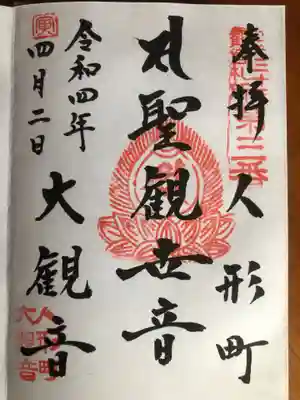 奉拝
人形町
聖観世音
令和四年
四月二日
大観音
第三番
寅
人形町
大観音